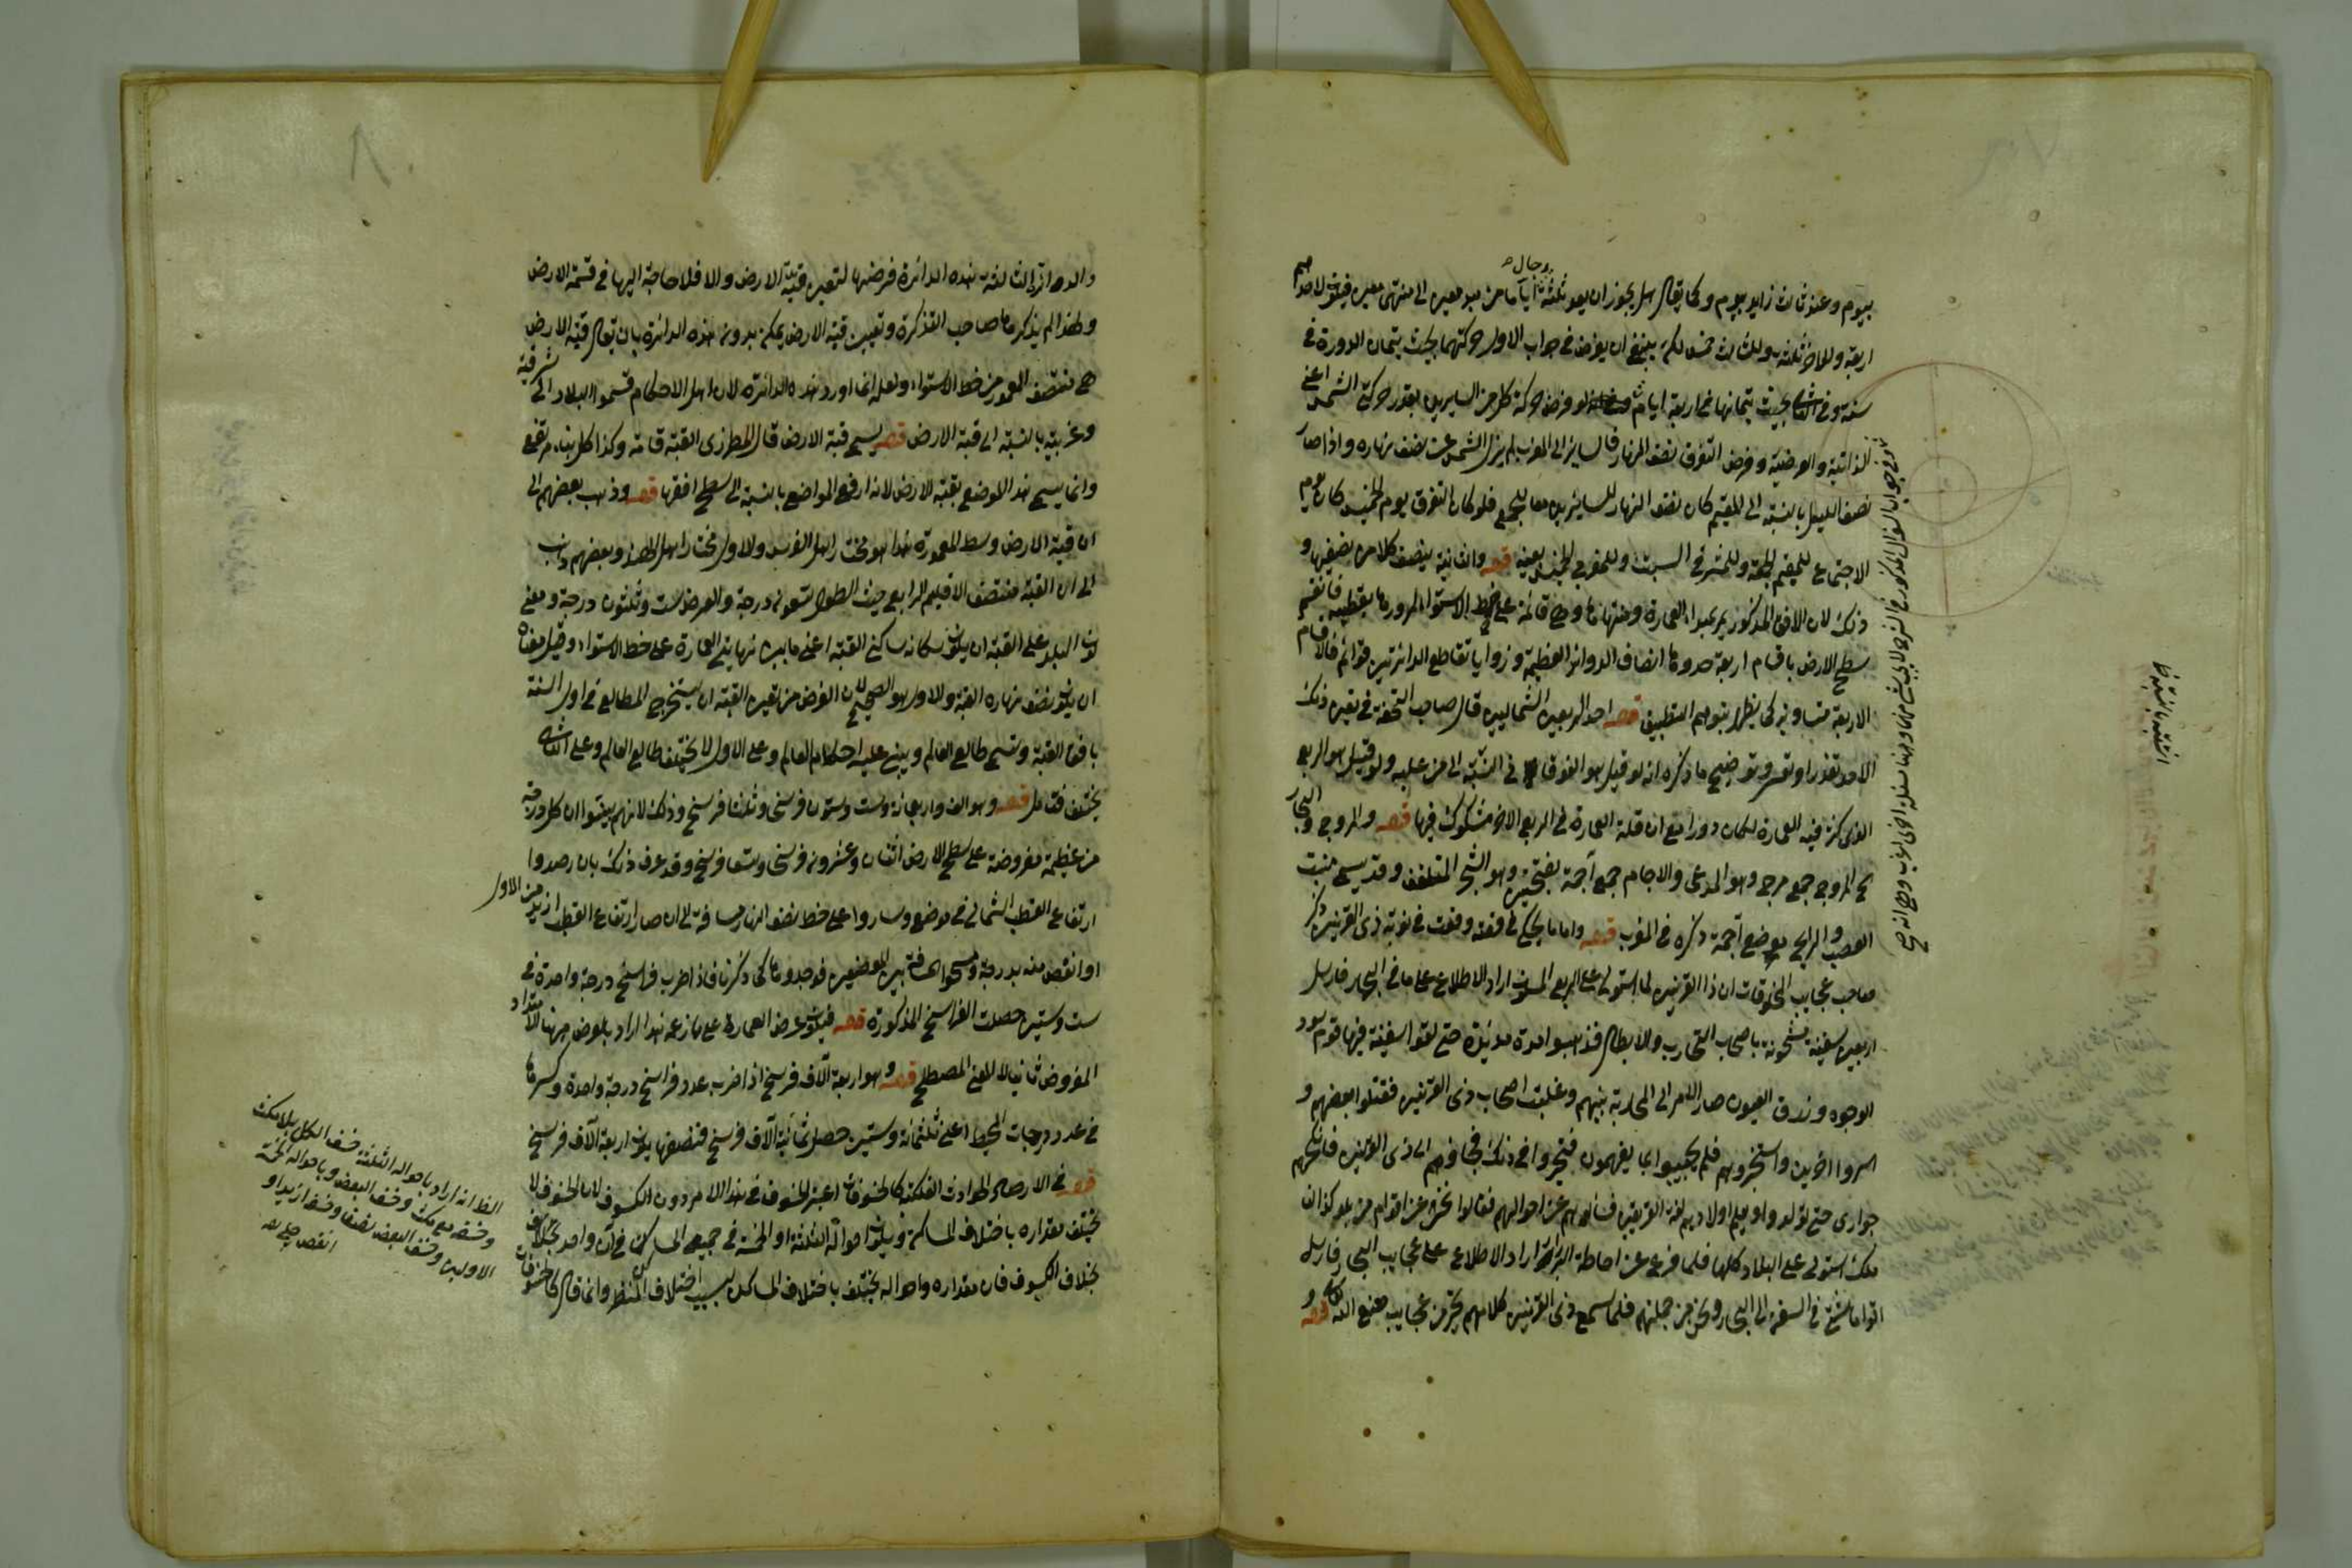 بيوم وعند ثالث زايد بيوم وكما يقال هل يجوز ان يعد ثلثة رجال اياما من مبدء معين الى منتهى معين فيكون لاحدهم
اربعة وللاخر ثلثة وللثالث خمس لكن ينبغي ان يفرض في جواب الاول حركتهما بحيث يتمان الدورة في
سنة وفي الثاني بحيث يتمانها في اربعة ايام لو فرض حركة كل من السايرين بقدر حركتي الشمس اعني
الذاتية والعرضية وفرض التفرق نصف النهار فالساير الى المغرب لم يزل الشمس عن نصف نهاره واذا صار
نصف الليل بالنسبة الى المقيم كان نصف النهار للسايرين معا فلو كان التفرق يوم الخميس كان يوم
الاجتماع للمقيم الجمعة وللمشرقي السبت وللمغربي الخميس بعينه قوله والثانية ينصف كلا من نصفيها و
ذلك لان الافق المذكور يمر بمبداء العمارة ومنتهاها وهي قائمة على خط الاستواء لمرورها بقطبيه فانقسم
سطح الارض باقسام اربعة حدودها انصاف الدوائر العظيمة وزوايا تقاطع الدائرتين قوائم فالاقسام
الاربعة متساوية كما يظهر بتوهم التطبيق قوله احد الربعين الشماليين قال صاحب التحفة في تعيين ذلك
الاحد تعذر او تعسر وتوضيح ما ذكره انه لو قيل هو الفوقاني في النسبة الى من عليه ولو قيل هو الربع
الذي كثر فيه العمارة لكان دورا مع ان قلة العمارة في الربع الاخر مشكوك فيها قوله والمروج والبحار
المروج جمع مرج وهو المرعى والاجام جمع اجمة بفتحتين وهو الشجر الملتف وقد يسمى منبت
القصب والبراري موضع اجمة ذكره في المغرب قوله واما ما يحكى في قصة وقعت في نوبة ذي القرنين ذكر
صاحب عجايب المخلوقات ان ذا القرنين لما استولى على الربع المسكون اراد الاطلاع على ما في البحار فارسل
اربعين سفينة مشحونة باصحاب التجارب والابطال فذهبوا مدة مديدة حتى لقوا سفينة فيها قوم سود
الوجوه وزرق العيون صار الامر الى المحاربة بينهم وغلبت اصحاب ذي القرنين فقتلوا بعضهم و
اسروا اخرين واستخبروهم فلم يجيبوا بما يفهمون فتحيروا في ذلك فجاؤا بهم الى ذي القرنين فانكحهم
جواري حتى تولدوا وتعلم اولادهم لغة الفريقين فسالوهم عن احوالهم فقالوا نحن من اقوام من بلد كذا ان
ملكنا استولى على البلاد كلها فلما فرغ عن احاطة البر اراد الاطلاع على عجايب البحار فارسل
اقواما شتى في السفن الى البحار ونحن من جملتهم فلما سمع ذي القرنين كلامهم تحير من عجايب صنع الله تعالى قوله
والدائرة الثالثة هذه الدائرة فرضها لتعيين قبة الارض والا فلا حاجة اليها في قسمة الارض
ولهذا لم يذكرها صاحب التذكرة وتعيين قبة الارض يمكن بدون هذه الدائرة بان يقال قبة الارض
هي منتصف المعمور من خط الاستواء ولعله انما اورد هذه الدائرة لان اهل الاحكام قسموا البلاد الى شرقية
وغربية بالنسبة الى قبة الارض قوله يسمى قبة الارض قال المطرزي القبة قامة وكذا كل بناء مرتفع
وانما يسمى هذا الموضع بقبة الارض لانه ارفع المواضع بالنسبة الى سطح افقها قوله وذهب بعضهم الى
ان قبة الارض وسط المعمورة هذا هو مختار اهل الفرس والاول مختار اهل الهند وبعضهم ذهب
الى ان القبة منتصف الاقليم الرابع حيث الطول تسعون درجة والعرض ست وثلثون درجة ومعنى
كون البلد على القبة ان يكون سكانه ساكني القبة اعني ما بين نهايتي العمارة على خط الاستواء وقيل معناه
ان يكون نصف نهاره القبة والاول هو الصحيح لان الغرض من تعيين القبة ان يستخرج المطالع في اول السنة
بافق القبة وتسمى طالع العالم ويبنى عليه احكام العالم وعلى الاول لا يختلف طالع العالم وعلى الثاني
يختلف فتامل قوله وهو الف واربعمائة وست وستون فرسخا وثلثا فرسخ وذلك لانهم بينوا ان كل درجة
من عظيمة مفروضة على سطح الارض اثنان وعشرون فرسخا وتسعا فرسخ وقد عرف ذلك بان رصدوا
ارتفاع القطب الشمالي في موضع وساروا على خط نصف النهار مسافة الى ان صار ارتفاع القطب ازيد من الاول
او انقص منه بدرجة ومسحوا المسافة بين الموضعين فوجدوها كما ذكرنا فاذا ضرب فراسخ درجة واحدة في
ست وستين حصلت الفراسخ المذكورة قوله فيكون عرض العمارة على ما زعمه هذا المراد بالعرض ههنا الامتداد
المفروض ثانيا لا المعنى المصطلح قوله وهو اربعة الاف فرسخ اذا ضرب عدد فراسخ درجة واحدة وكسرها
في عدد درجات المحيط اعني ثلثمائة وستين حصل ثمانية الاف فرسخ فنصفها يكون اربعة الاف فرسخ
قوله في الارصاد الحوادث الفلكية كالخسوفات اعتبر الخسوف في هذا الامر دون الكسوف لان الخسوف لا
يختلف مقداره باختلاف المساكن ويكون احواله الثلثة او الخمسة في جميع المساكن في آن واحد بخلاف
بخلاف الكسوف فان مقداره واحواله يختلف باختلاف المساكن بسبب اختلاف المنظر وانما قال كالخسوفات
الظ انه اراد باحواله الثلثة خسف الكل بلا مكث
وخسفه مع مكث وخسف البعض وباحواله الخمسة
الاولين وخسف البعض نصفا وخسفه ازيد او
انقص